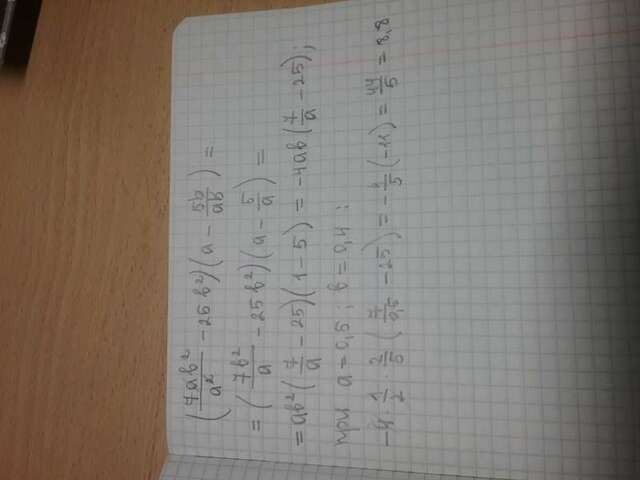 (7ab²/a² - 25b²)(a - 5b/ab) =
= (7b²/a - 25b²)(a - 5/a) =
= ab²(7/a - 25)(1 - 5) = -4ab(7/a - 25);
при a = 0,5; b = 0,4;
-4 · 1/2 · 2/5 (7/0,5 - 25) = -4/5(-11) = 44/5 = 8,8